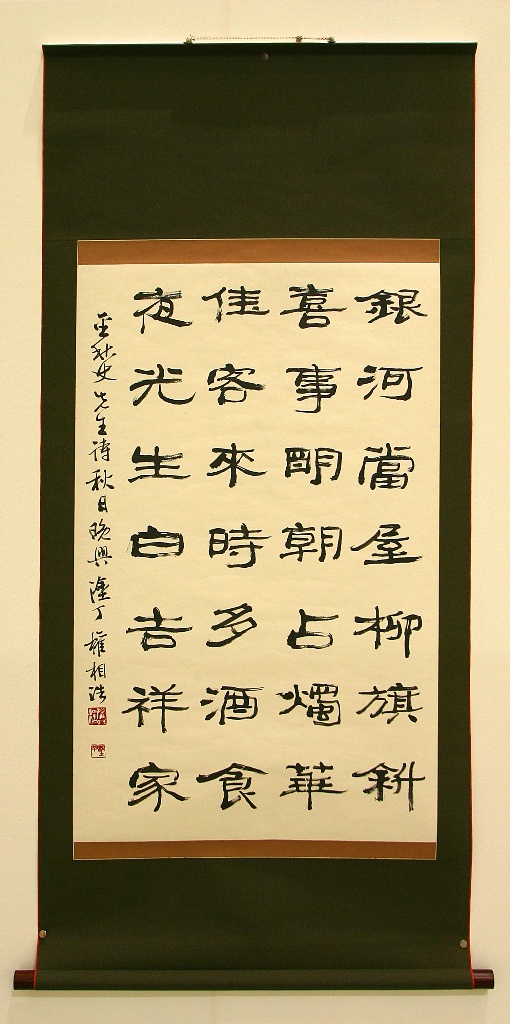 銀河當屋柳旗斜
喜事明朝占燭華
佳客來時多酒食
夜光生白吉祥家
金秋史先生詩秋日晩興塗丁權相浩